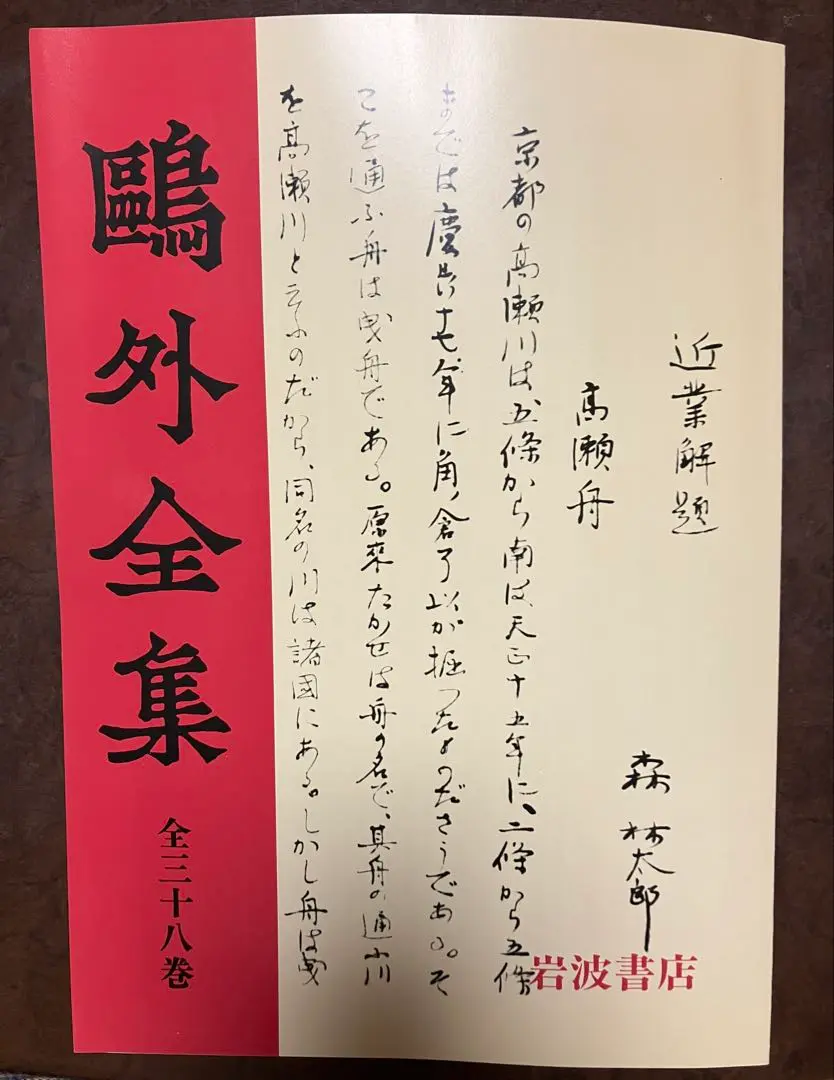 近業解題
森林太郎
高瀬舟
京都の高瀬川は、五條から南は天正十五年に、二條から五條
までは慶長十七年に、角倉了以が掘つたものださうである。そ
こを通ふ舟は曳舟である。原來たかせは舟の名で、其舟の通ふ川
を高瀬川と云ふのだから、同名の川は諸國にある。しかし舟は曳
岩波書店
鷗外全集
全三十八巻